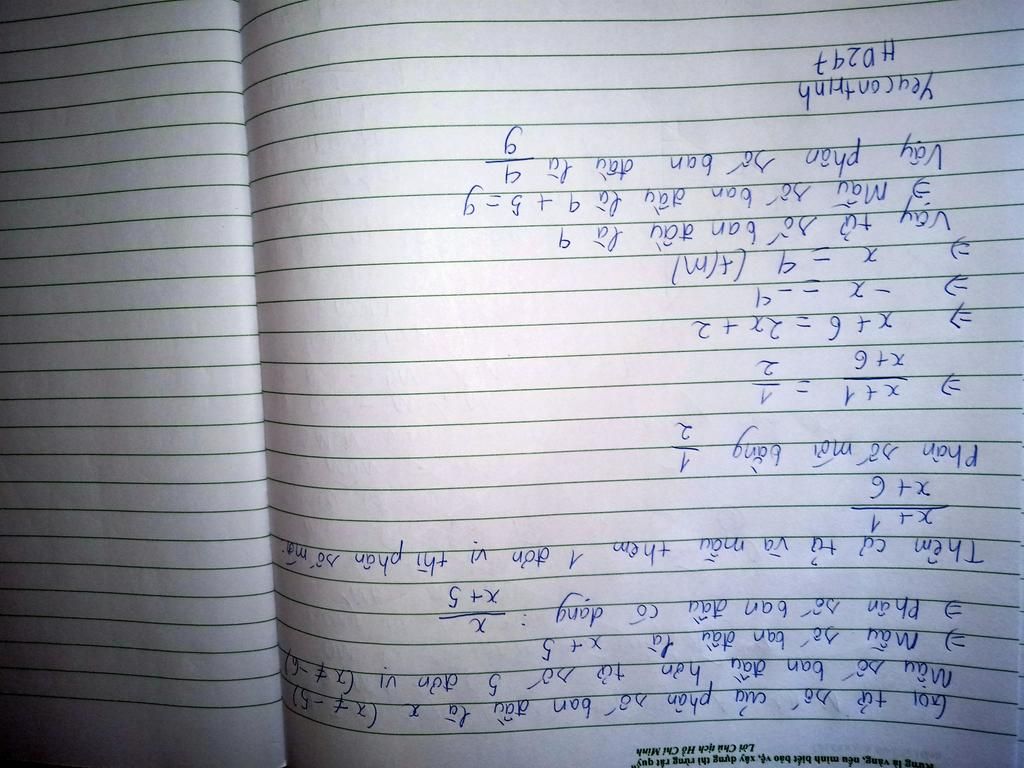 Rừng là vàng, nếu mình biết bảo vệ, xây dựng thì rừng rất quý"
Lời Chủ tịch Hồ Chí Minh
Gọi tử số của phân số ban đầu là x (x ≠ -5)
Mẫu số ban đầu hơn tử số 5 đơn vị (x ≠ -6)
=> Mẫu số ban đầu là x + 5
=> Phân số ban đầu có dạng : x/(x+5)
Thêm cả tử và mẫu thêm 1 đơn vị thì phân số mới
(x+1)/(x+6)
Phân số mới bằng 1/2
=> (x+1)/(x+6) = 1/2
=> x + 6 = 2x + 2
=> -x = -4
=> x = 4 (t/m)
Vậy tử số ban đầu là 4
=> Mẫu số ban đầu là 4 + 5 = 9
Vậy phân số ban đầu là 4/9
Yeucontrinh
HD247